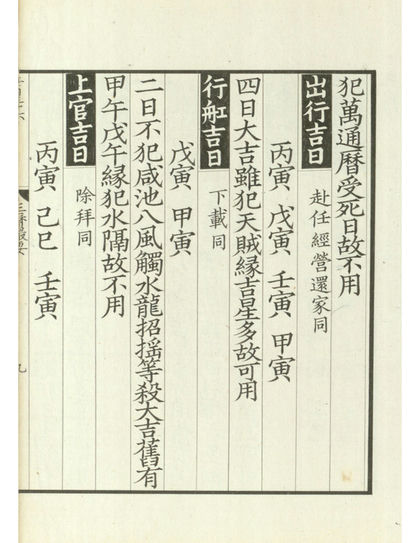 犯萬通曆受死日故不用
出行吉日 赴任經營還家同
丙寅 戊寅 壬寅 甲寅
四日大吉雖犯天賊緣吉星多故可用
行船吉日 下載同
戊寅 甲寅
二日不犯咸池八風觸水龍招搖等殺大吉舊有
甲午戊午緣犯水隔故不用
上官吉日 除拜同
丙寅 己巳 壬寅
九